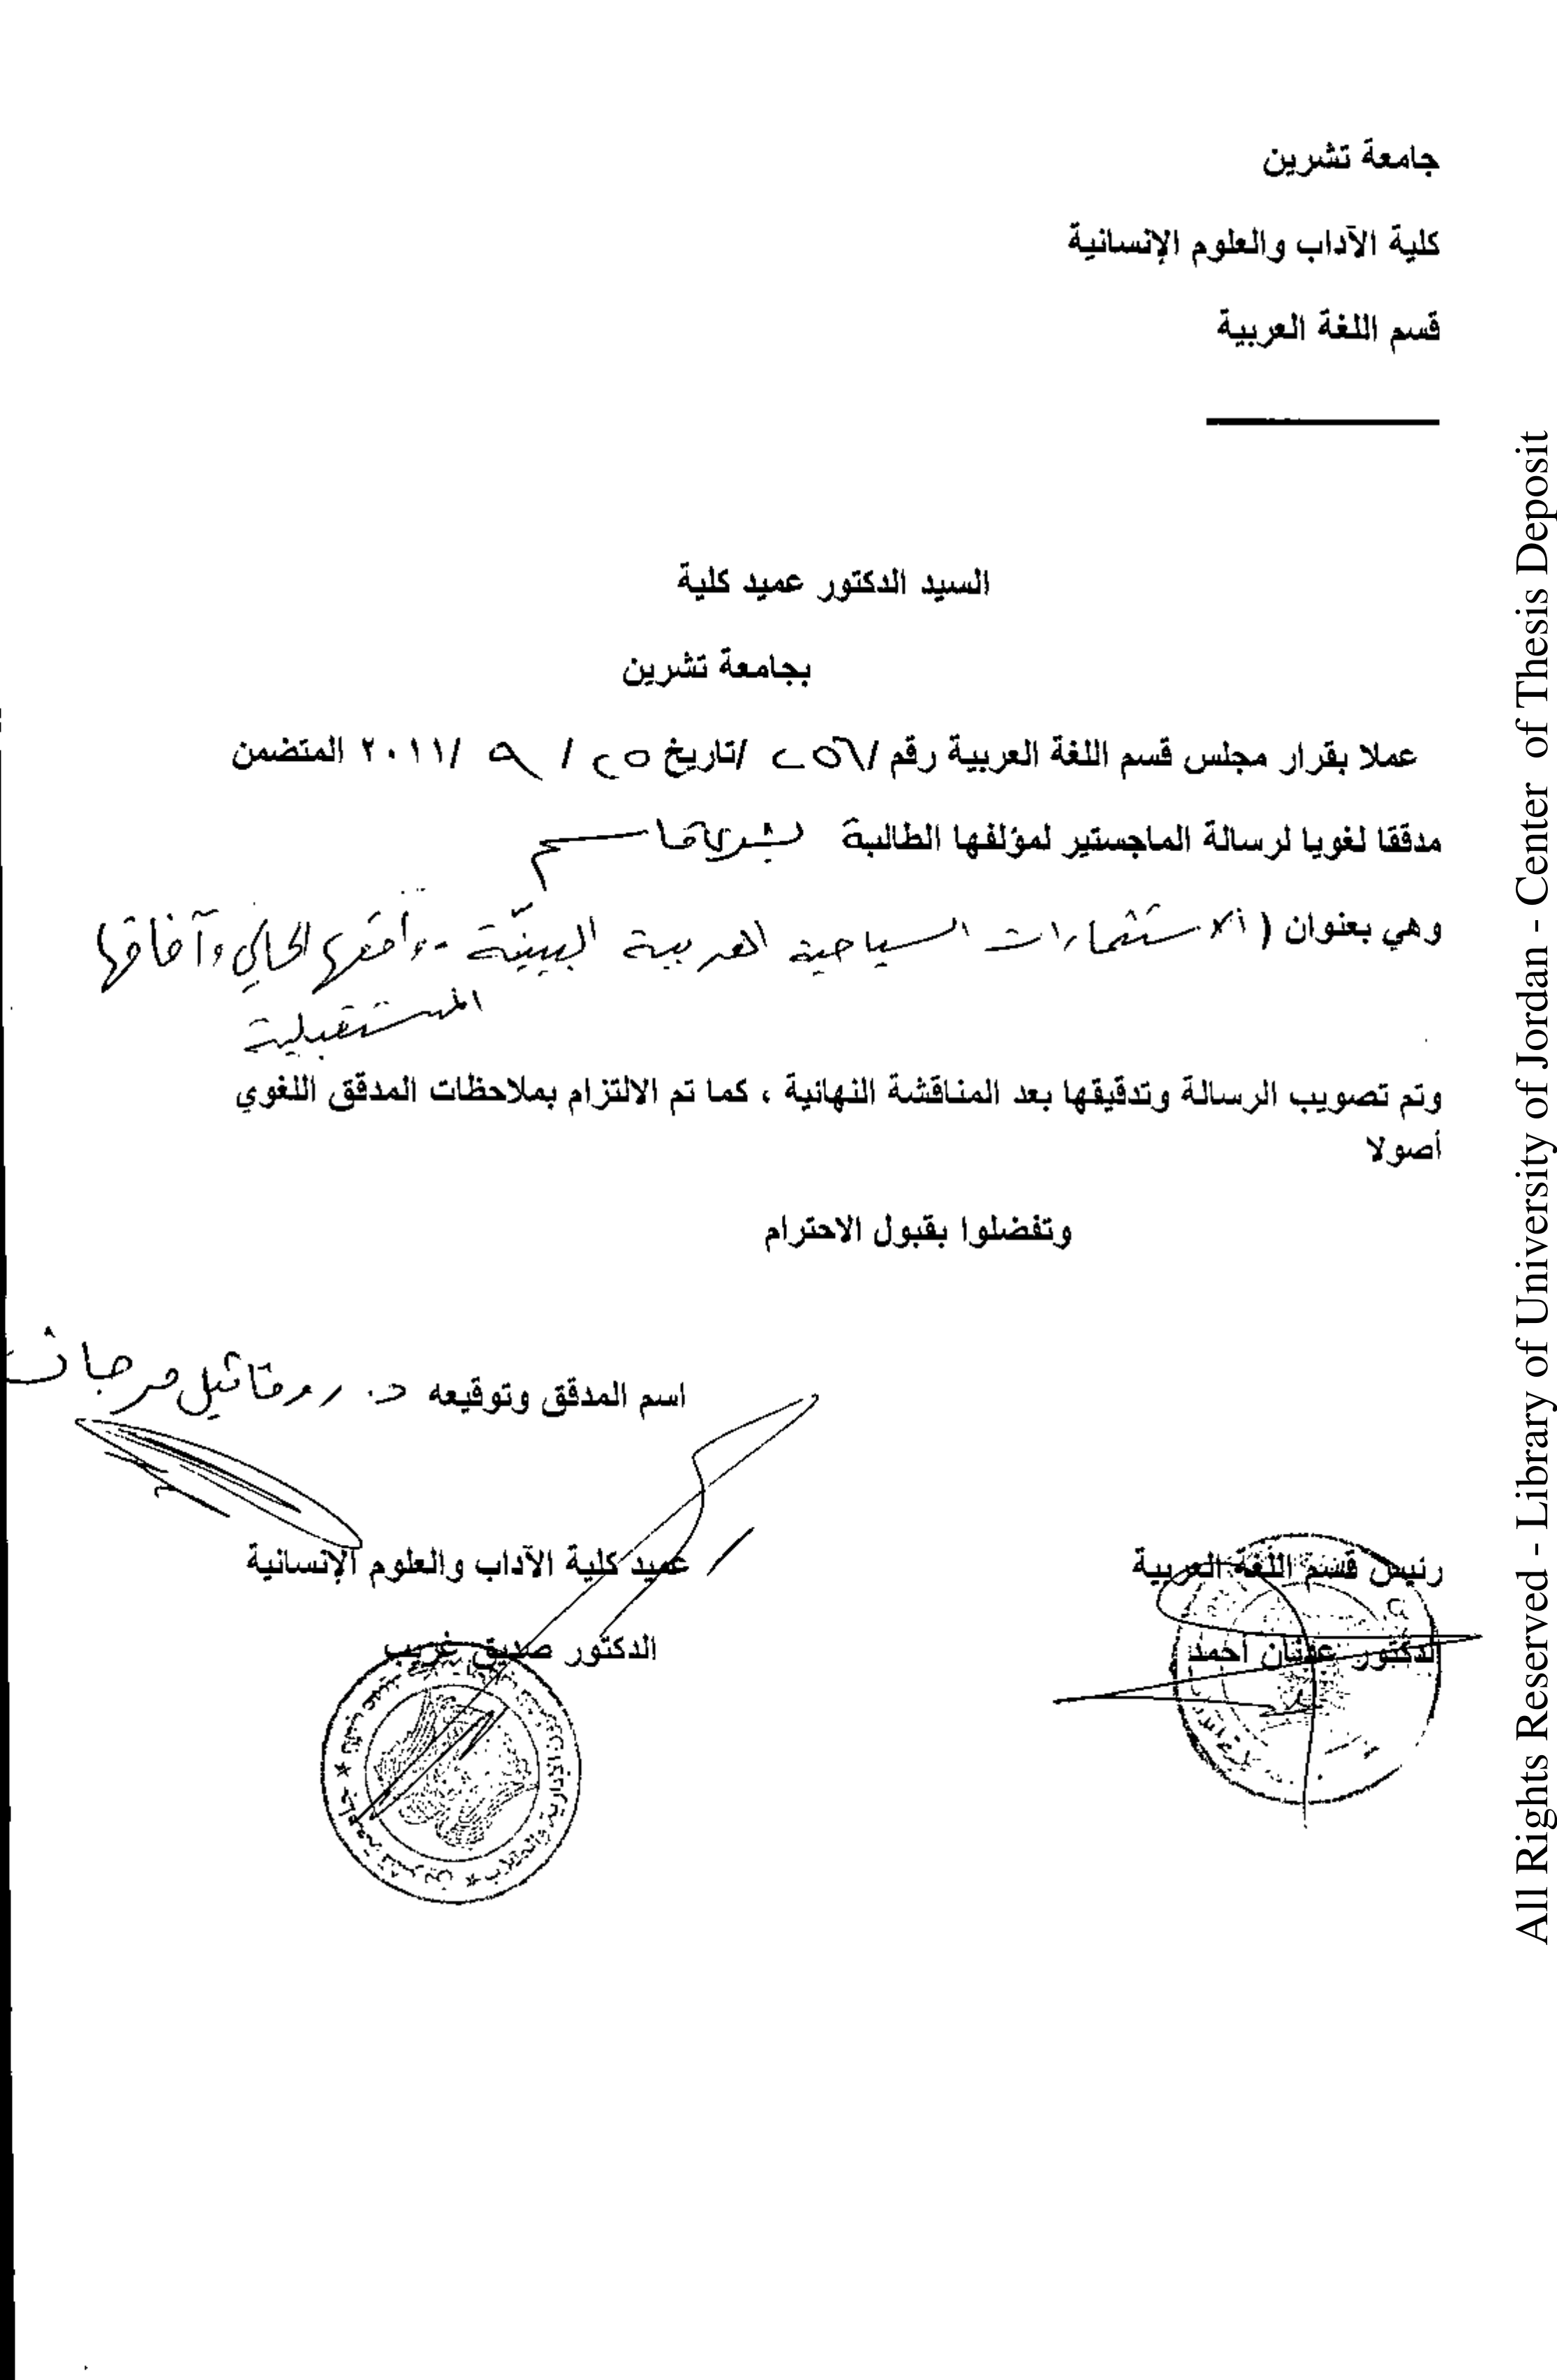 جامعة تشرين
كلية الآداب والعلوم الإنسانية
قسم اللغة العربية
السيد الدكتور عميد كلية
بجامعة تشرين
عملا بقرار مجلس قسم اللغة العربية رقم / /تاريخ ٢٥ / ٩ /٢٠١١ المتضمن
مدققا لغويا لرسالة الماجستير لمؤلفها الطالبة بشرى قاسم
وهي بعنوان ( الاستثمارات السياحية العربية البينيّة - واقعها الحالي وآفاقها
المستقبلية
وتم تصويب الرسالة وتدقيقها بعد المناقشة النهائية ، كما تم الالتزام بملاحظات المدقق اللغوي
أصولا
وتفضلوا بقبول الاحترام
اسم المدقق وتوقيعه د. مرجان
عميد كلية الآداب والعلوم الإنسانية
رئيس قسم اللغة العربية
الدكتور صديق غريب
الدكتور عدنان أحمد
All Rights Reserved - Library of University of Jordan - Center of Thesis Deposit